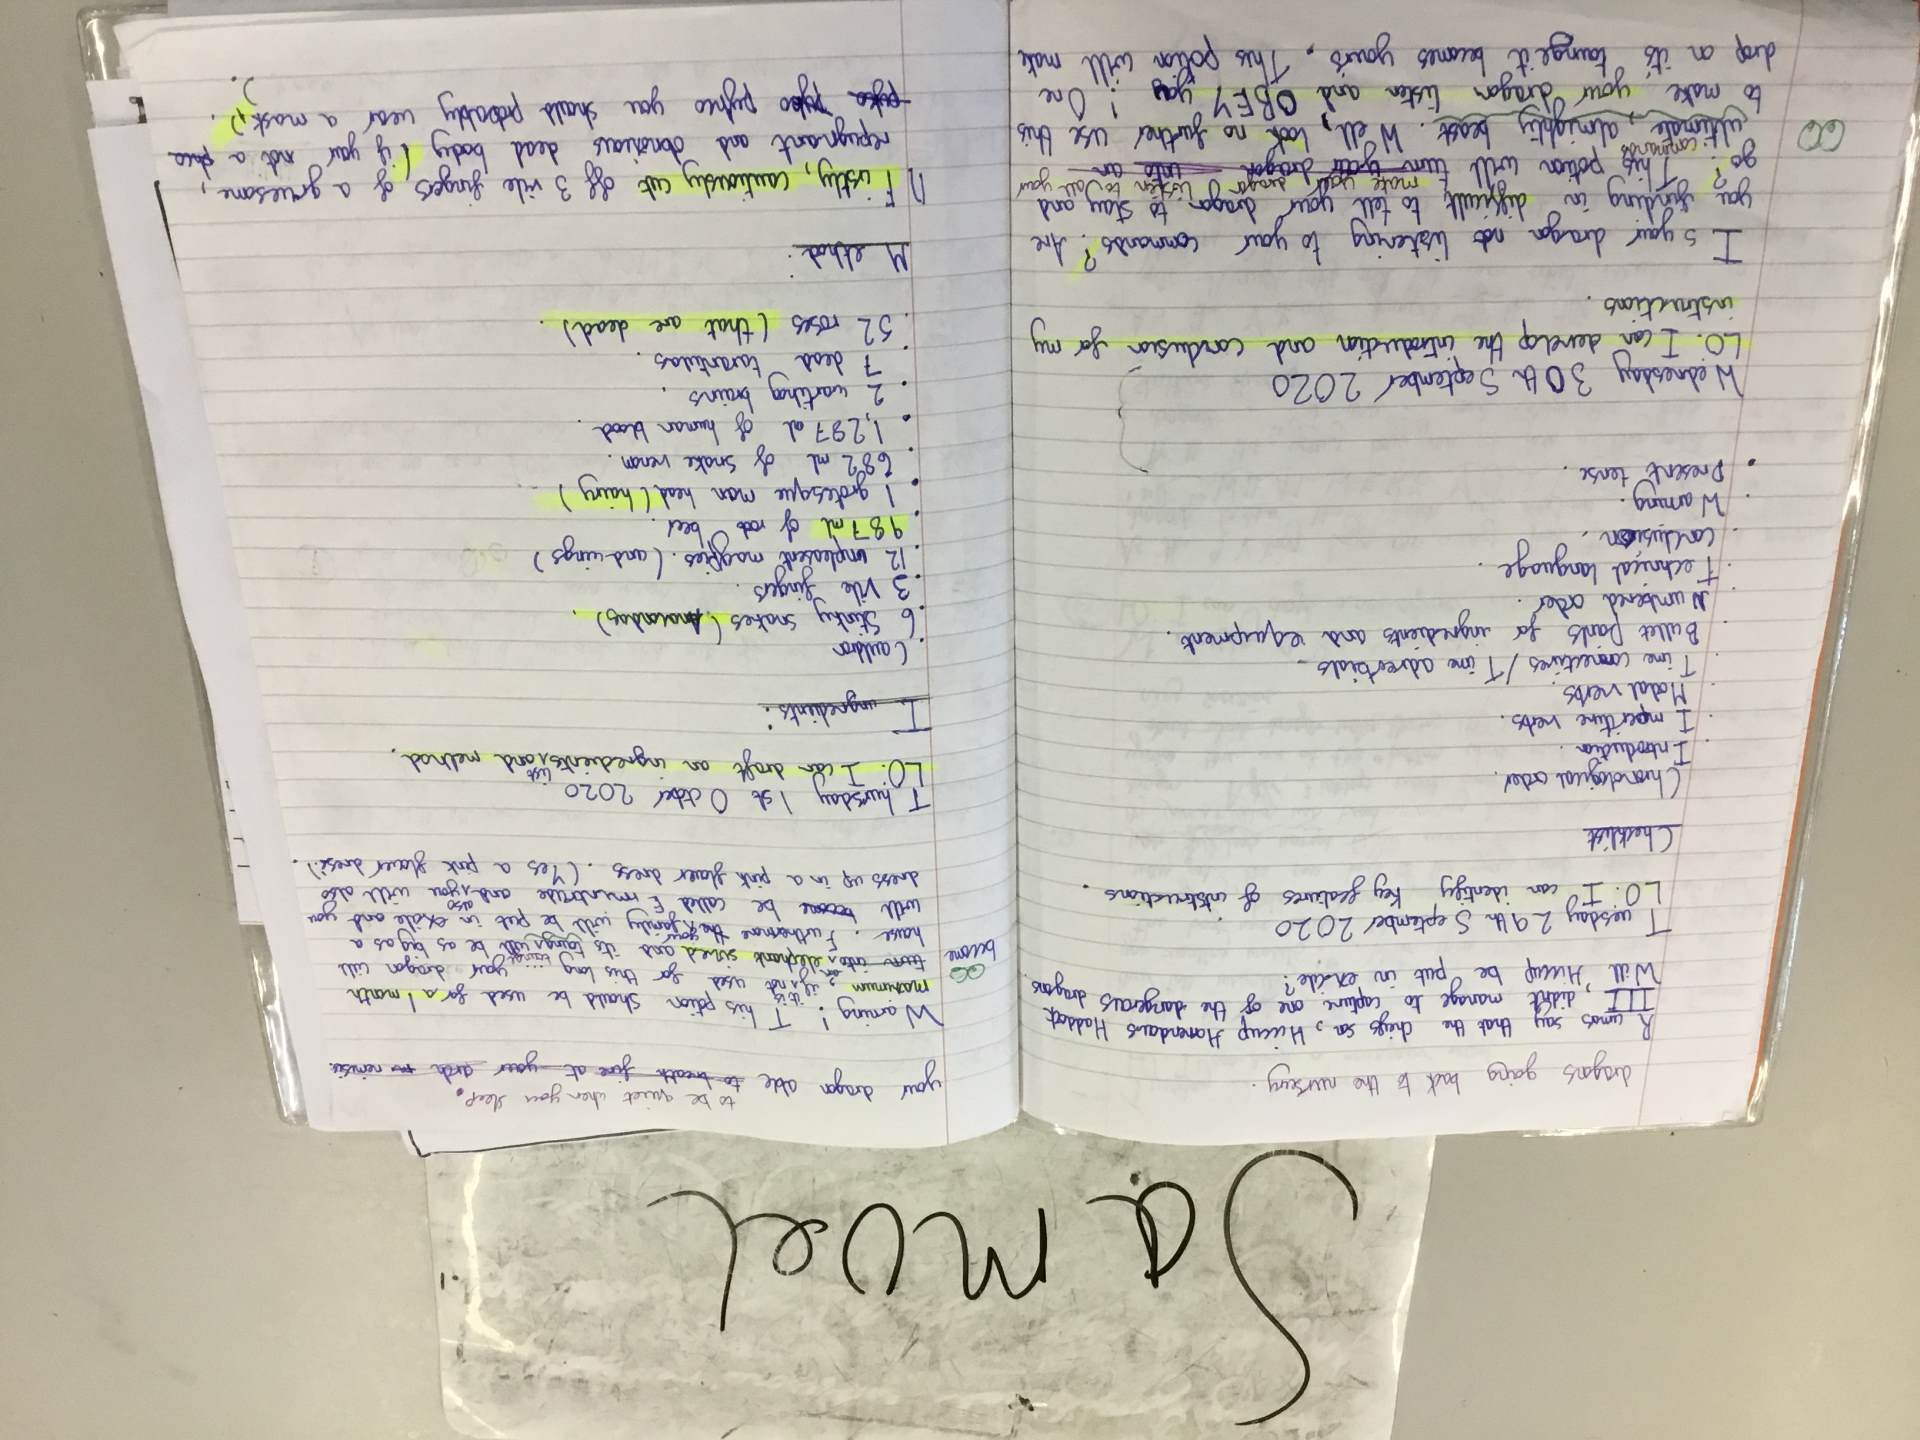 Samuel
dragons going back to the nursery.
Rumos say that the chiefs son, Hiccup Horrendous Haddock
III didn't manage to capture one of the dangerous dragons
Will, Hiccup be put in exile?
Tuesday 29th September 2020
LO: I can identify key features of intstructions.
Checklist
Chronological order.
Introduction.
Imperitive verbs.
Modal verbs.
Time connectives / Time adverbials
Bullet points for ingredients and equipment.
Numbered order.
Technical language.
Conclusion.
Warning.
Present tense.
Wednesday 30th September 2020
LO: I can develop the introduction and conclusion for my
instructions.
Is your dragon not listening to your commands? Are
you finding in difficult to tell your dragon to stay and
make your dragon listen to all your
go? This potion will turn your dragon into an
commands
ultimate, almighty beast. Well, look no further use this
to make your dragon listen and OBEY you! One
drop on its tounge it becomes yours. This potion will make
to be quiet when you sleep.
your dragon able to breath fire at your arch nemisis
Warning! This potion should be used for a 1 month
maximum, if it is not used for this long your dragon will
become
turn into an elephant sized and its tounge will be as big as a
house. Futhermore the your family will be put in exile and you
will become be called Ermintrude and you will also
dress up in a pink flower dress. (Yes a pink flower dress!).
Thursday 1st October 2020
LO: I can draft an ingredients list and method.
Ingredients:
Cauldron
6 Stinky snakes
3 Vile fingers.
12 unpleasent magpies. (and wings)
987 ml of root beer.
1 grotesque man head (hairy)
682 ml of snake venom.
1,297 ml of human blood.
2 warthog brains.
7 dead tarantulas.
52 roses (that are dead).
Method:
1) Firstly, cautiously cut off 3 vile fingers of a gruesome,
repugnant and obnoxious dead body (if your not a
pyho you should probably wear a mask).